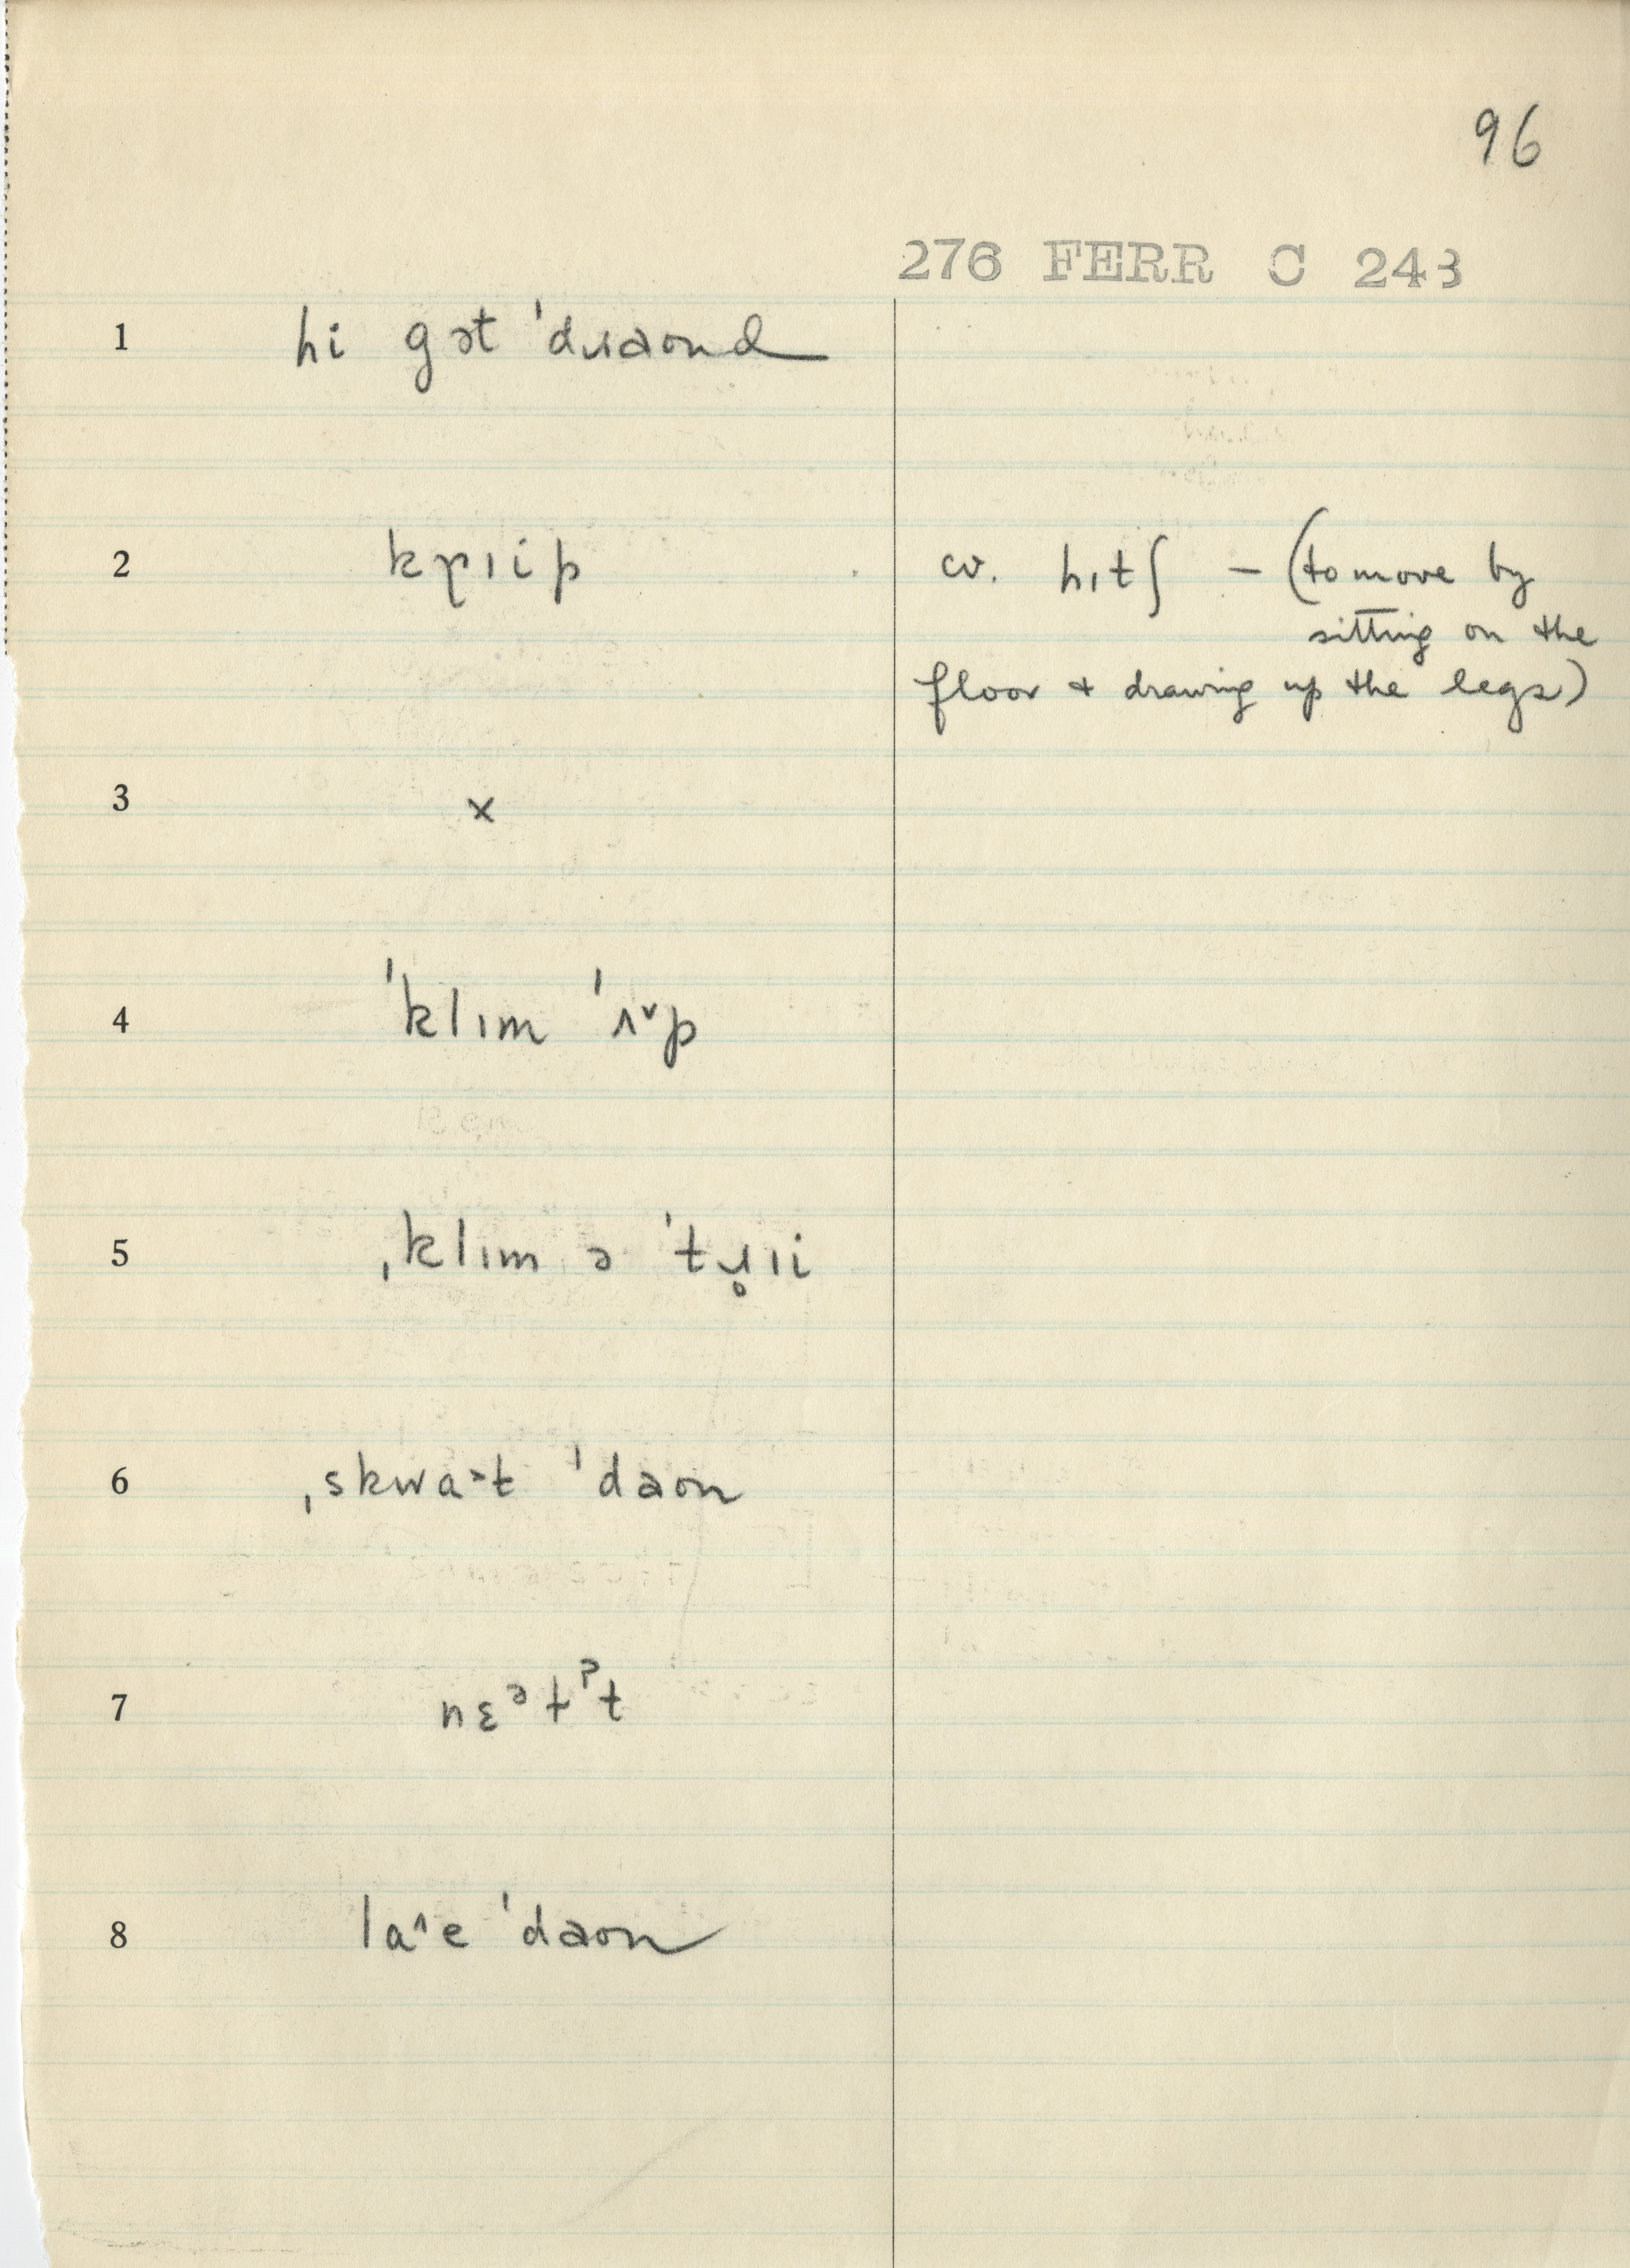 96
276 FERR C 243
1 hi gɔt ˈdɹaond
2 kɹ̥ɪip cv. hɪtʃ – (to move by
sitting on the
floor + drawing up the legs)
3 ×
4 ˈklɪm ˈʌ˅p
5 ˌklɪm ə ˈtɹ̥ɪi
6 ˌskwa˃t ˈdaon
7 nɛᵊɫˀt
8 la˄e ˈdaon